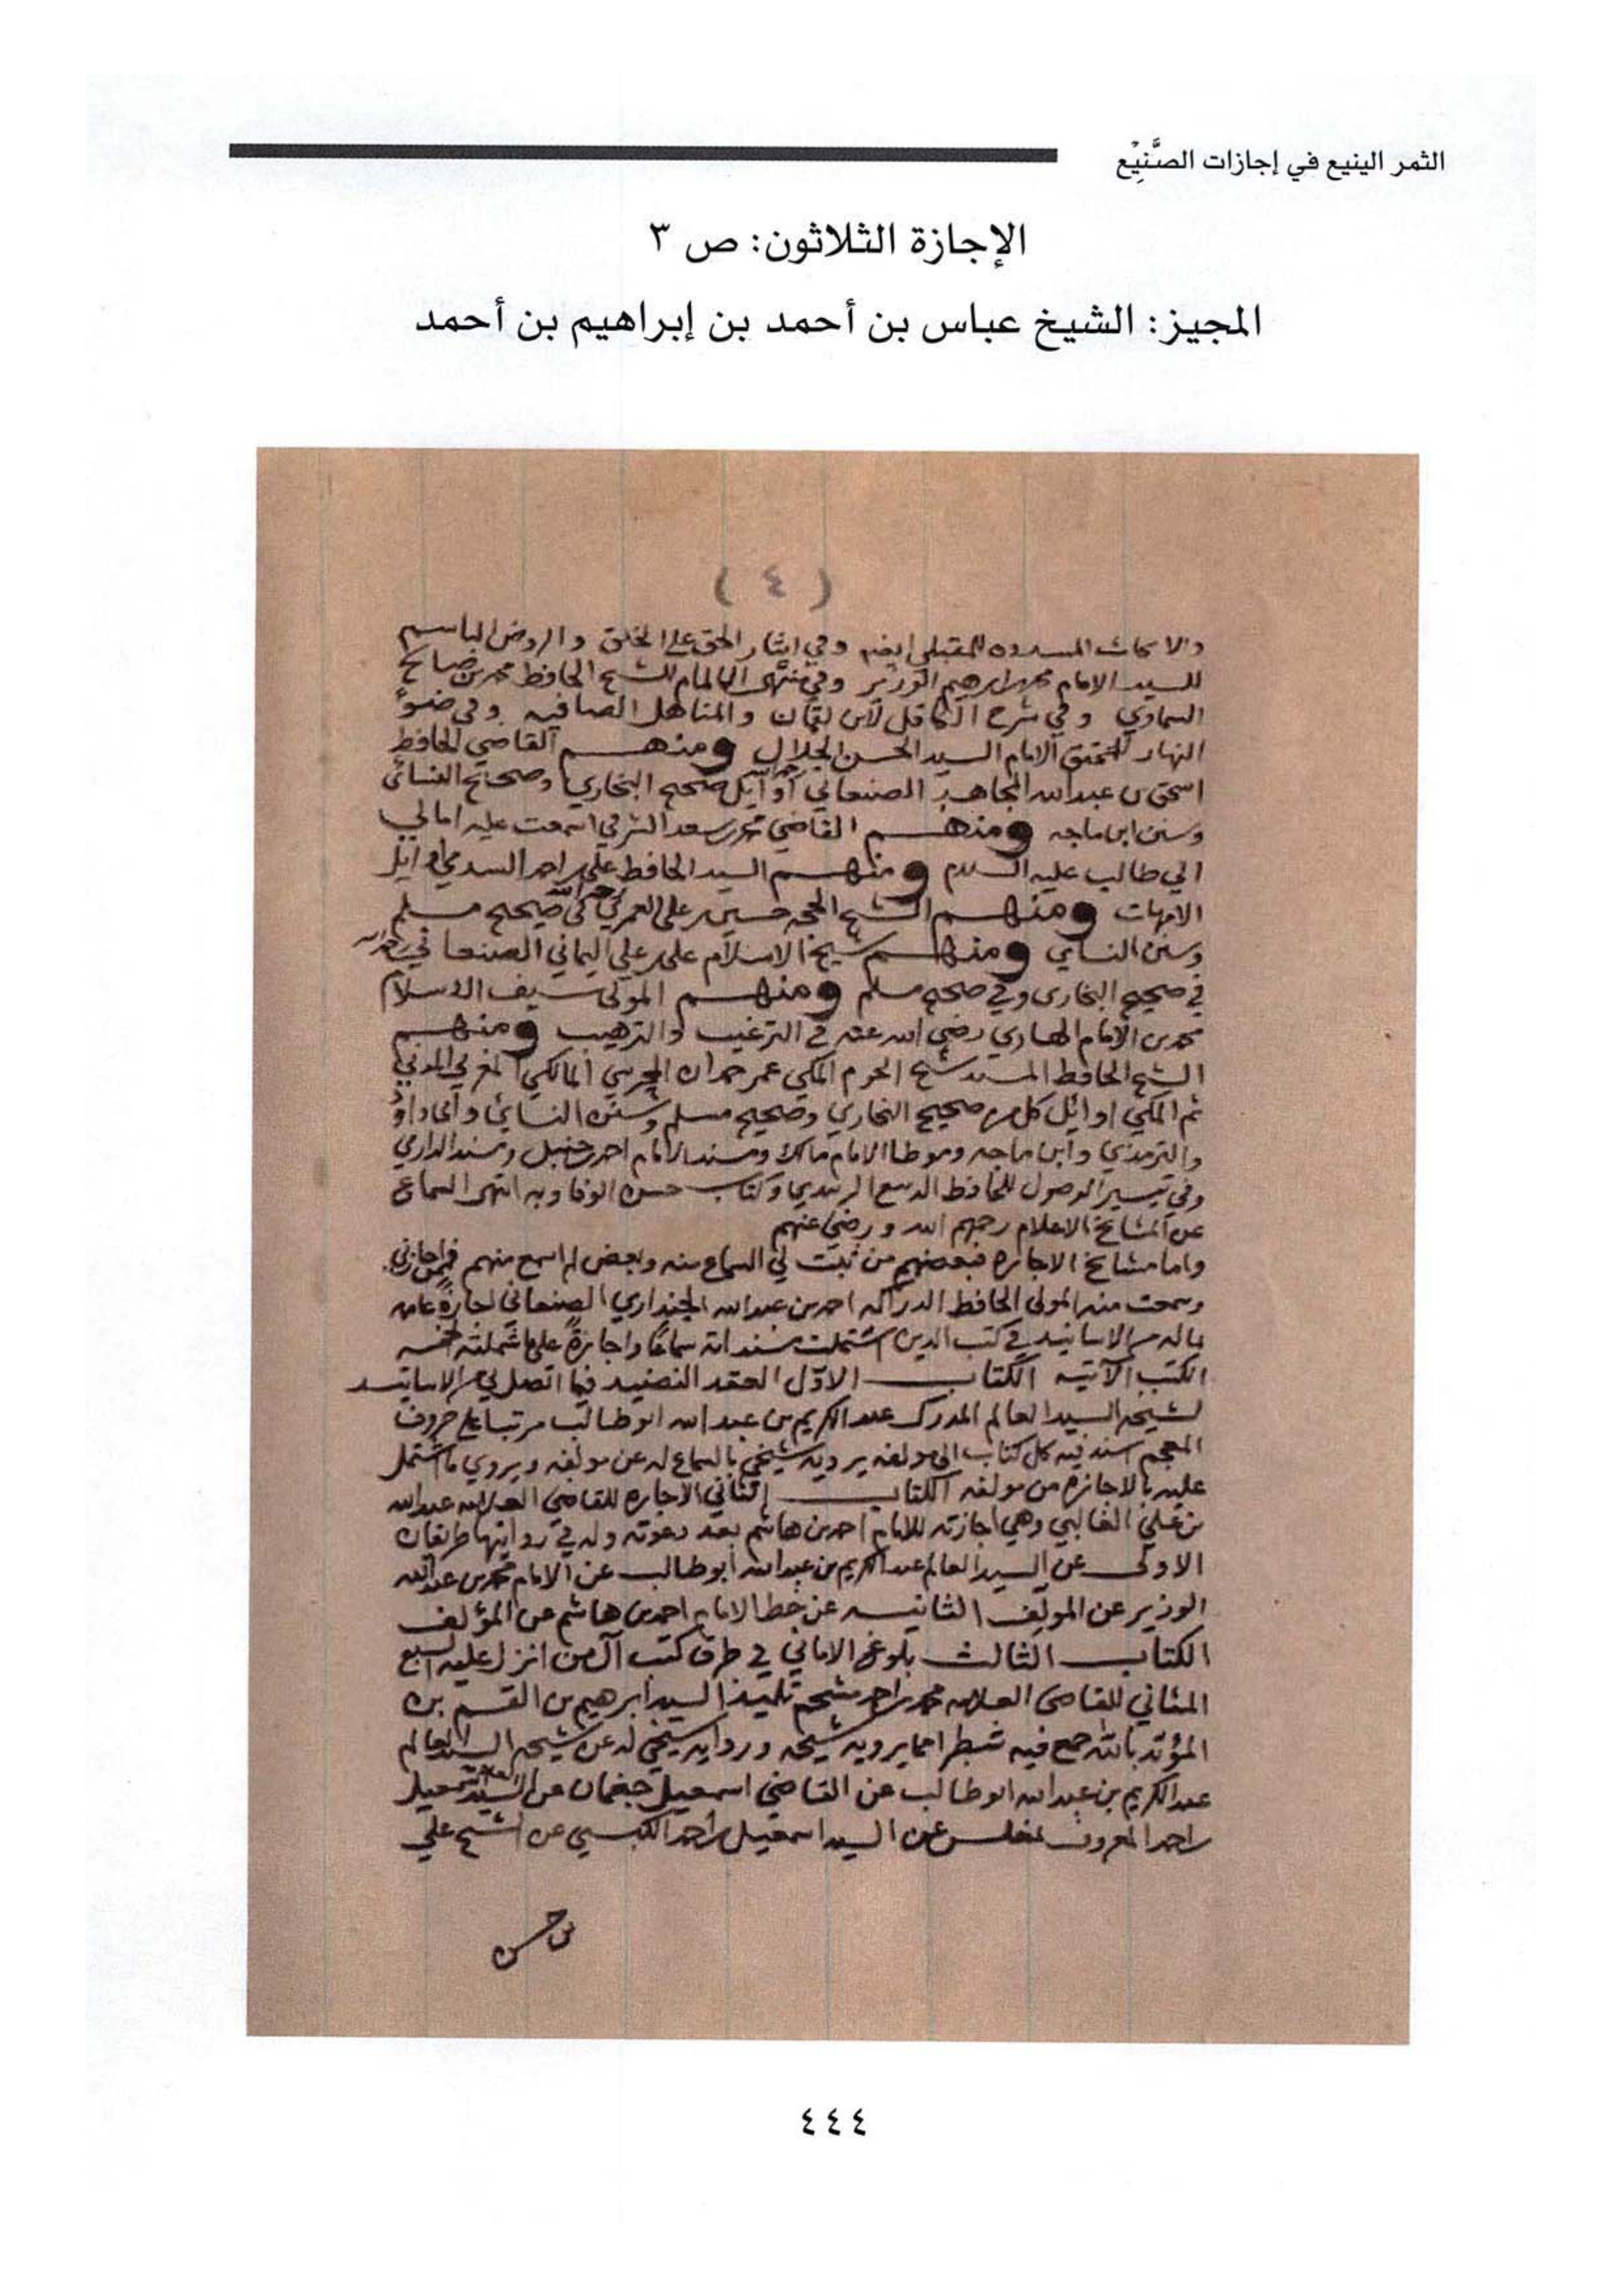 الثمر الينيع في إجازات الصَّنِيْع
الإجازة الثلاثون: ص ٣
المجيز: الشيخ عباس بن أحمد بن إبراهيم بن أحمد
( ٤ )
والابحاث المسدده للمقبلي ايضا وفي ايثار الحق على الخلق والروض الباسم
للسيد الامام محمد بن ابرهيم الوزير وفي منتهى الالمام للشيخ الحافظ محمد بن صالح
السماوي وفي شرح الكافل لابن لقمان والمناهل الصافيه وفي ضوء
النهار للمحقق الامام السيد الحسن الجلال ومنهم القاضي الحافظ
اسحق بن عبدالله المجاهد الصنعاني اوايل صحيح البخاري وصحايح النسائي
وسنن ابن ماجه ومنهم القاضي محمد سعد الشرفي اسمعت عليه امالي
ابي طالب عليه السلام ومنهم السيد الحافظ علي بن احمد السدمي اوايل
الامهات ومنهم الشيخ الحجه حسين بن علي العمري رحمه الله في صحيح مسلم
وسنن النسايي ومنهم شيخ الاسلام علي بن علي اليماني الصنعاني
في صحيح البخاري وفي صحيح مسلم ومنهم المولى سيف الاسلام
محمد بن الامام الهادي رضي الله عنه في الترغيب والترهيب ومنهم
الشيخ الحافظ المسند شيخ الحرم المكي عمر حمدان المحرسي المالكي المغربي المدني
ثم المكي اوائل كل من صحيح البخاري وصحيح مسلم وسنن النسائي وابي داود
والترمذي وابن ماجه وموطا الامام مالك ومسند الامام احمد بن حنبل ومسند الدارمي
وفي تيسير الوصول للحافظ الديبع الزبيدي وكتاب حسن الوفا وبه انتهى السماع
عن المشايخ الاعلام رحمهم الله ورضي عنهم
واما مشايخ الاجازه فبعضهم من ثبت لي السماع منه وبعض لم اسمع منهم فممن اجازني
وسمعت منه المولى الحافظ الدراكه احمد بن عبدالله الجنداري الصنعاني اجازة عامه
بما له من الاسانيد في كتب الدين اشتملت مسنداته سماعا واجازة على ما شملته خمسه
الكتب الآتيه الكتاب الاول العقد النضيد فيما اتصل لي من الاسانيد
لشيخه السيد العالم المدرك عبد الكريم بن عبدالله ابو طالب مرتبا على حروف
المعجم اسند فيه كل كتاب الى مولفه يرويه شيخي بالسماع له عن مولفه ويروي ما اشتمل
عليه بالاجازه من مولفه الكتاب الثاني الاجازه للقاضي العلامه عبدالله
بن علي الغالبي وهي اجازته للامام احمد بن هاشم بعد دعوته وله في روايتها طريقان
الاولى عن السيد العالم عبد الكريم بن عبدالله ابو طالب عن الامام محمد بن عبدالله
الوزير عن المولف الثانيه عن خط الامام احمد بن هاشم عن المؤلف
الكتاب الثالث بلوغ الاماني في طرق كتب آل من انزل عليه السبع
المثاني للقاضي العلامه محمد بن احمد مشحم تلميذ السيد ابرهيم بن القسم بن
المؤيد بالله جمع فيه شطرا مما يرويه شيخه ورواية شيخي له عن شيخه السيد العالم
عبد الكريم بن عبدالله ابو طالب عن القاضي اسمعيل جغمان عن السيد العلامه اسمعيل
بن احمد المعروف بمغلس عن السيد اسمعيل بن احمد الكبسي عن الشيخ علي
بن حسن
٤٤٤